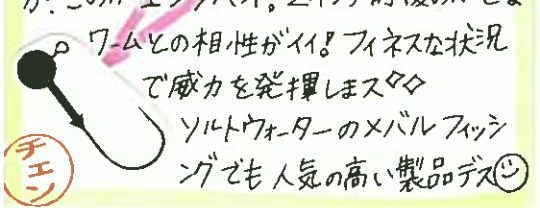 ワームとの相性がイイ!フィネスな状況
で威力を発揮しまス◇◇
ソルトウォーターのメバルフィッシ
ングでも人気の高い製品デス☺
チェン